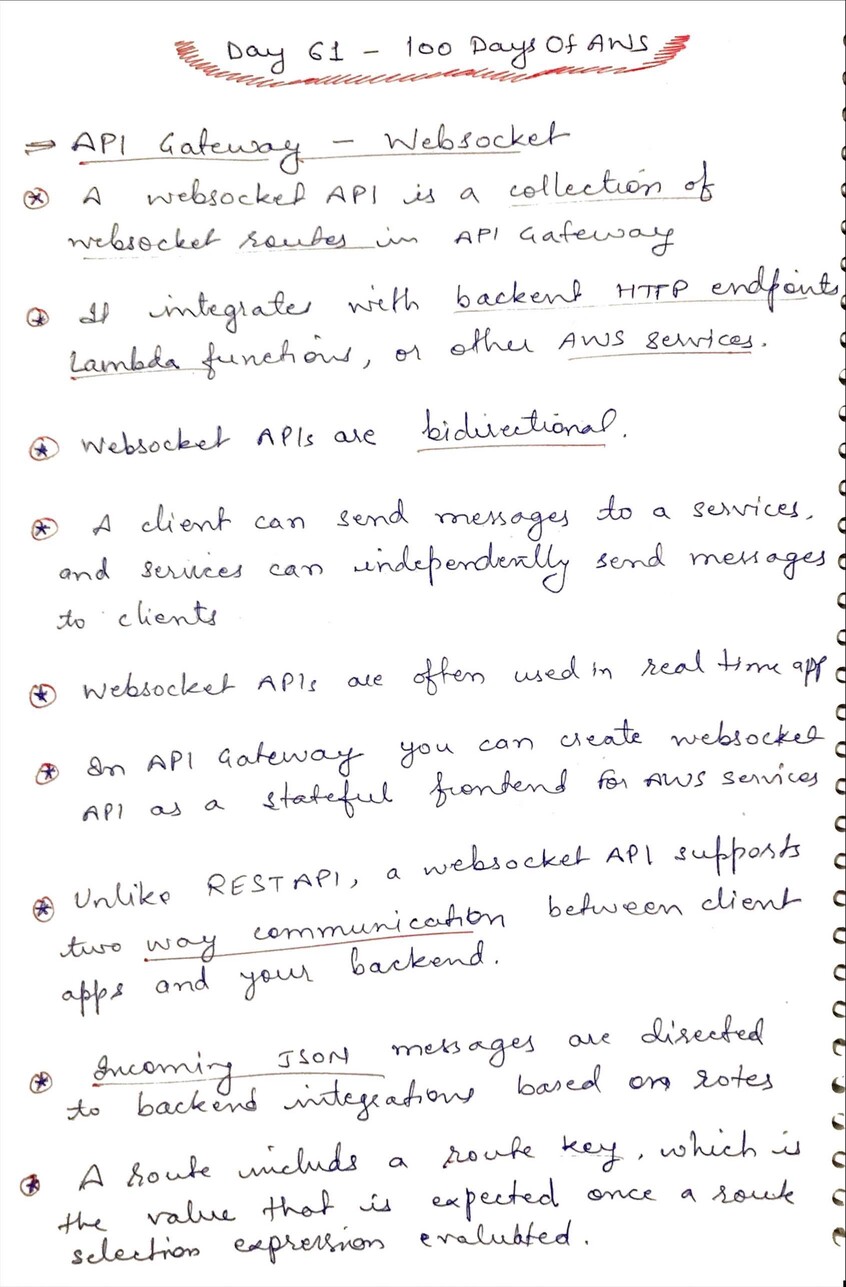 Day 61 - 100 Days Of AWS
⇒ API Gateway - Websocket
A websocket API is a collection of
websocket routes in API Gateway
It integrates with backent HTTP endpoints
Lambda functions, or other AWS services.
Websocket APIs are bidirectional.
A client can send messages to a services,
and services can independently send messages
to clients
Websocket APIs are often used in real time app
In API Gateway you can create websocket
API as a stateful frontend for AWS services
Unlike REST API, a websocket API supports
two way communication between client
apps and your backend.
Incoming JSON messages are directed
to backend integrations based on rotes
A route includs a route key, which is
the value that is expected once a route
selection expression evalubted.